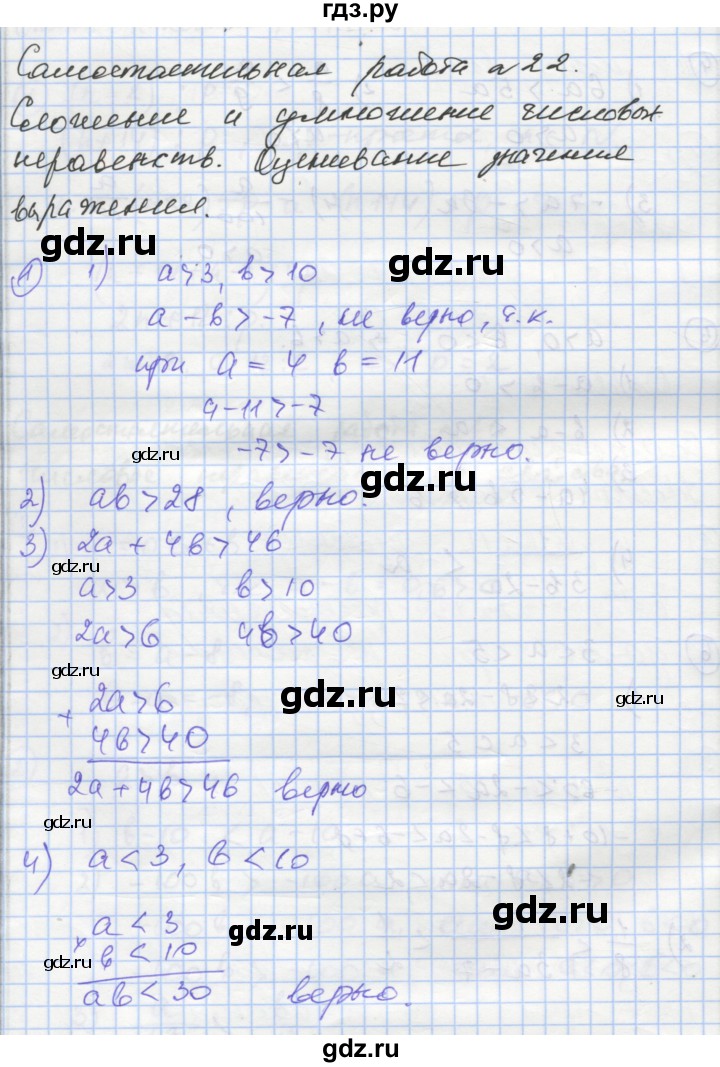 гдз.ру
Самостоятельная работа №22.
Сложение и умножение числовых
неравенств. Оценивание значения
выражения.
gdz.ru
gdz.ru
① 1) a>3, b>10
a-b>-7, не верно, т.к.
при a=4 b=11
4-11>-7
gdz.ru
-7>-7 не верно.
gdz.ru
2) ab>28, верно.
3) 2a+4b>46
gdz.ru
a>3 b>10
2a>6 4b>40
gdz.ru
gdz.ru
gdz.ru
+ 2a>6
4b>40
2a+4b>46 верно
gdz.ru
4) a<3, b<10
gdz.ru
gdz.ru
gdz.ru
× a<3
b<10
ab<30 верно.
gdz.ru